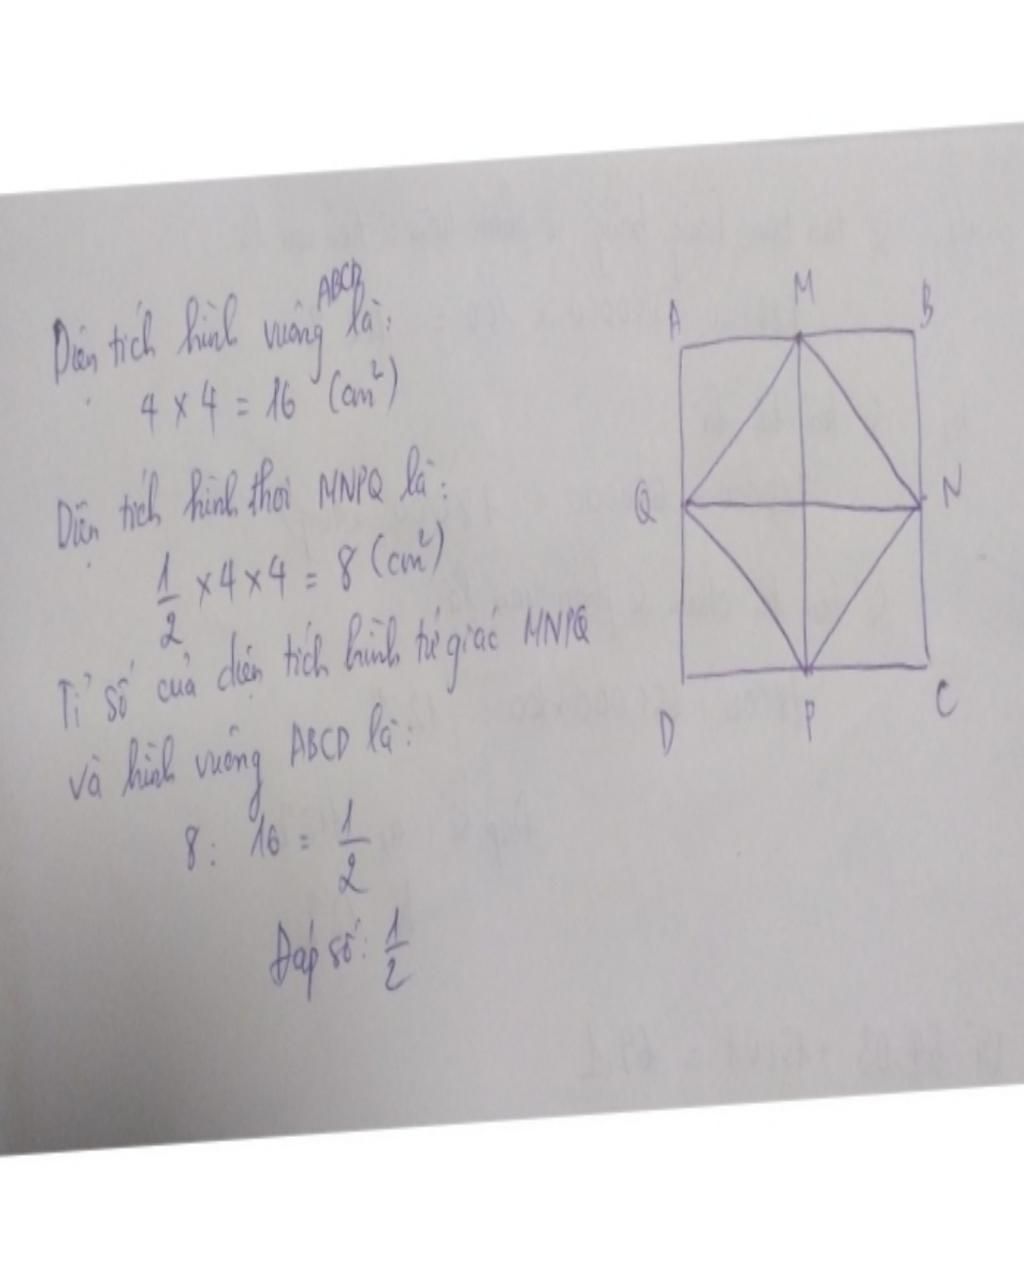 Diện tích hình vuông ABCD là:
4 x 4 = 16 (cm²)
Diện tích hình thoi MNPQ là:
1/2 x 4 x 4 = 8 (cm²)
Tỉ số của diện tích hình tứ giác MNPQ
và hình vuông ABCD là:
8 : 16 = 1/2
Đáp số: 1/2
A M B
Q N
D P C